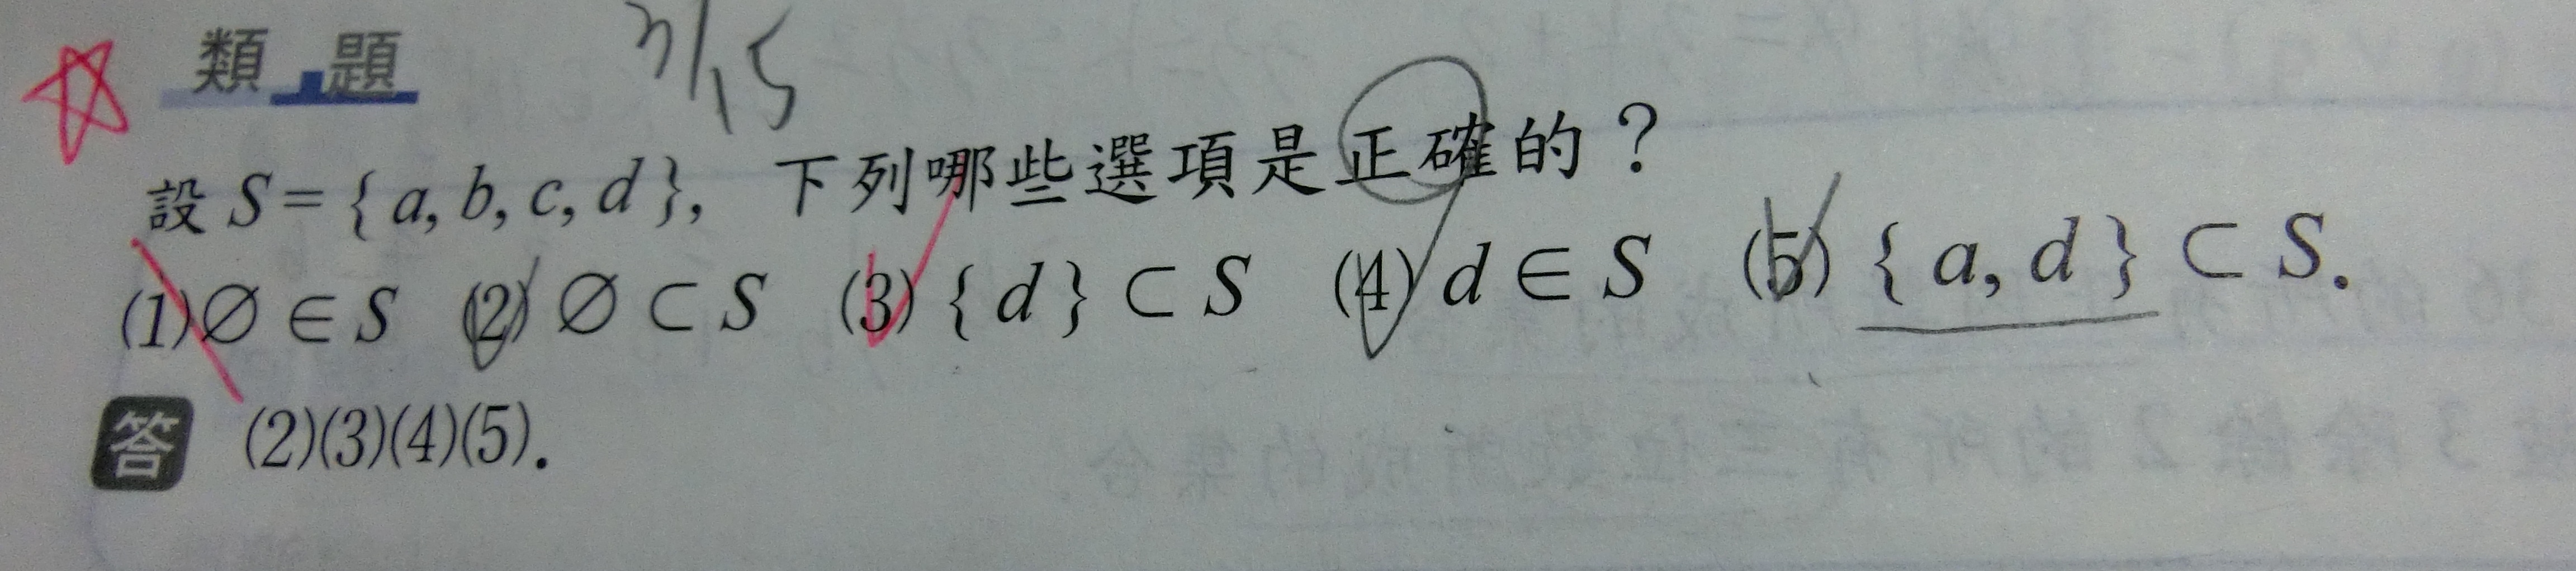 類題
7/15
設 S = { a, b, c, d }, 下列哪些選項是正確的？
(1) ∅ ∈ S (2) ∅ ⊂ S (3) { d } ⊂ S (4) d ∈ S (5) { a, d } ⊂ S.
答 (2)(3)(4)(5).